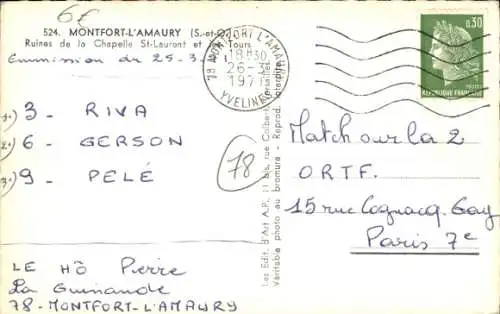 6€
524. MONTFORT-L'AMAURY
Ruines de la Chapelle St-Laurent et Tours
Emission du 25-3
1°) 3 - RIVA
2°) 6 - GERSON
3°) 9 - PELÉ
LE HÔ Pierre
La Guinande
78 - MONTFORT-L'AMAURY
78 MONTFORT L'AMAURY
18H30
26-3
197
YVELINES
78
Les Edit. d'Art A.P., 11 bis, rue Colbert, Versailles
Véritable photo au bromure - Reprod. interdite
0,30
REPUBLIQUE FRANÇAISE
Match sur la 2
ORTF.
15 rue Cognacq-Gay
Paris 7e